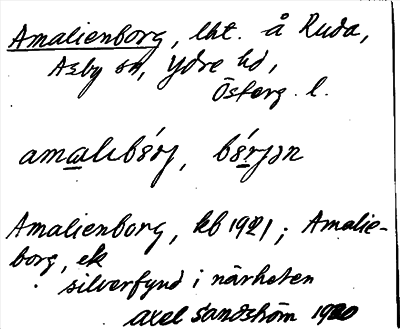 Amalienborg, lht. å Ruda,
Asby sn, Ydre hd,
Österg. l.
Amalienborg, kb 1921; Amalie-
borg, ek
silverfynd i närheten
Axel Sandström 1920